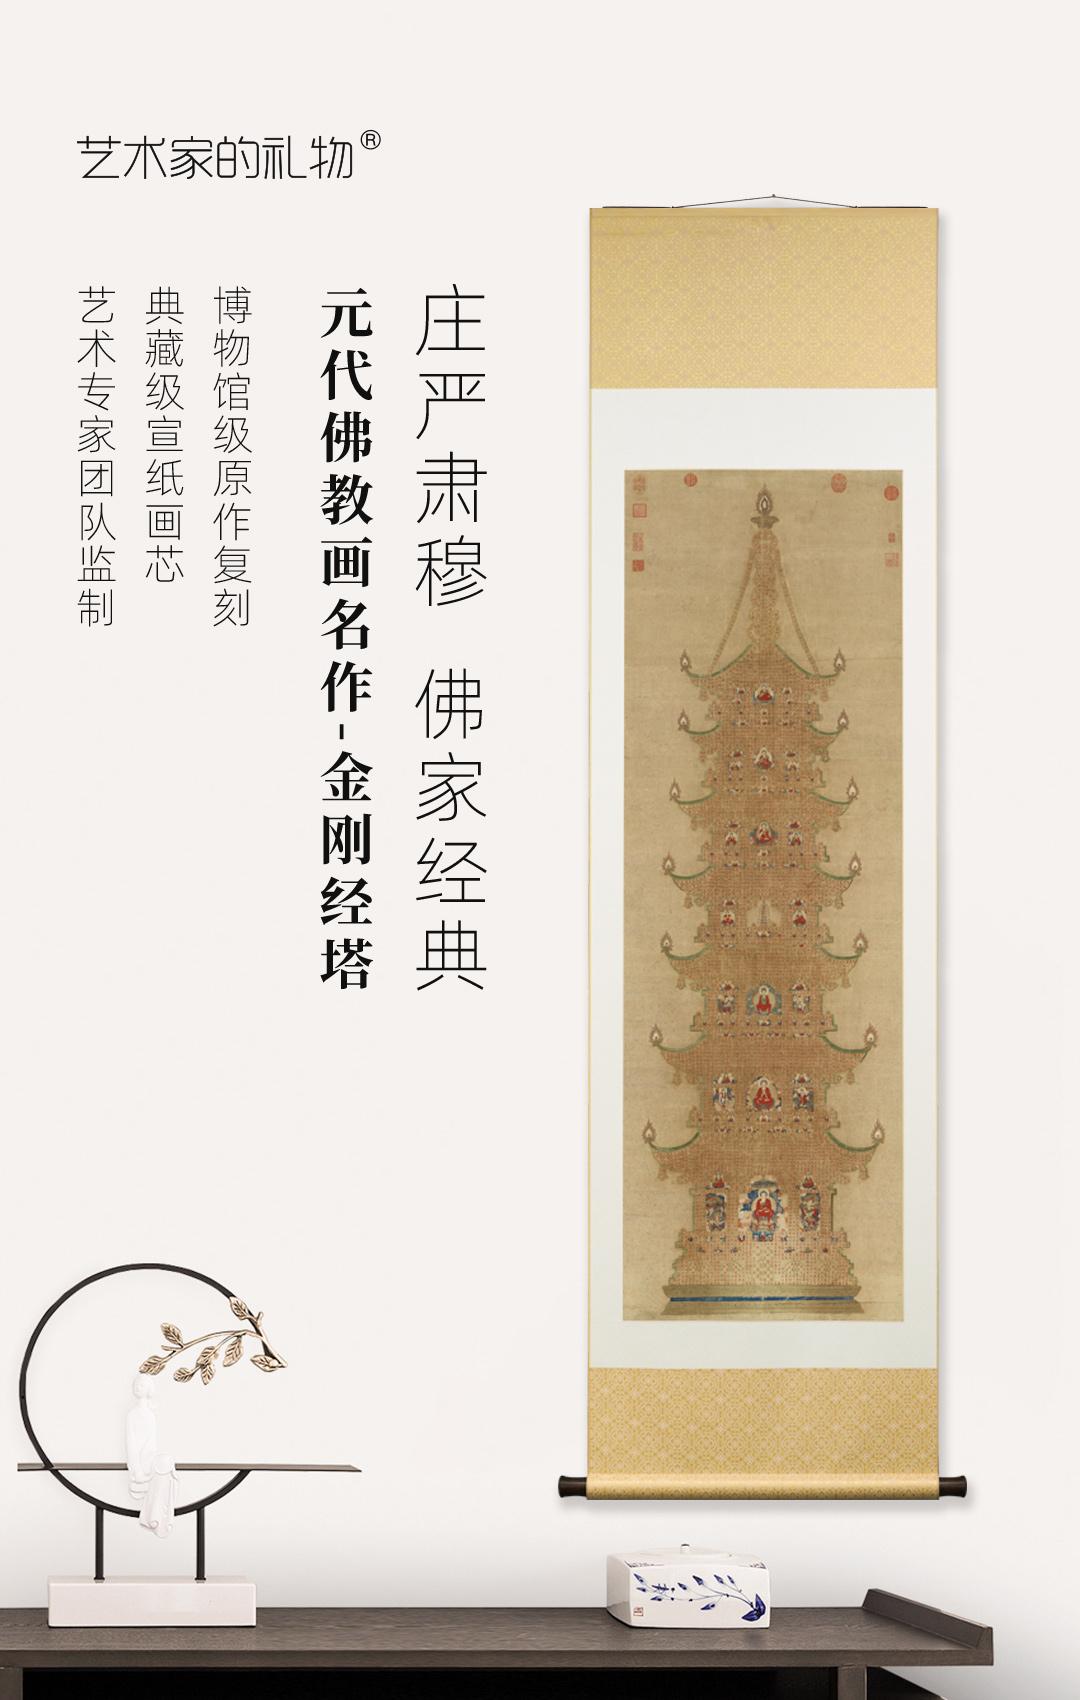 艺术家的礼物®
庄严肃穆 佛家经典
元代佛教画名作-金刚经塔
博物馆级原作复刻
典藏级宣纸画芯
艺术专家团队监制